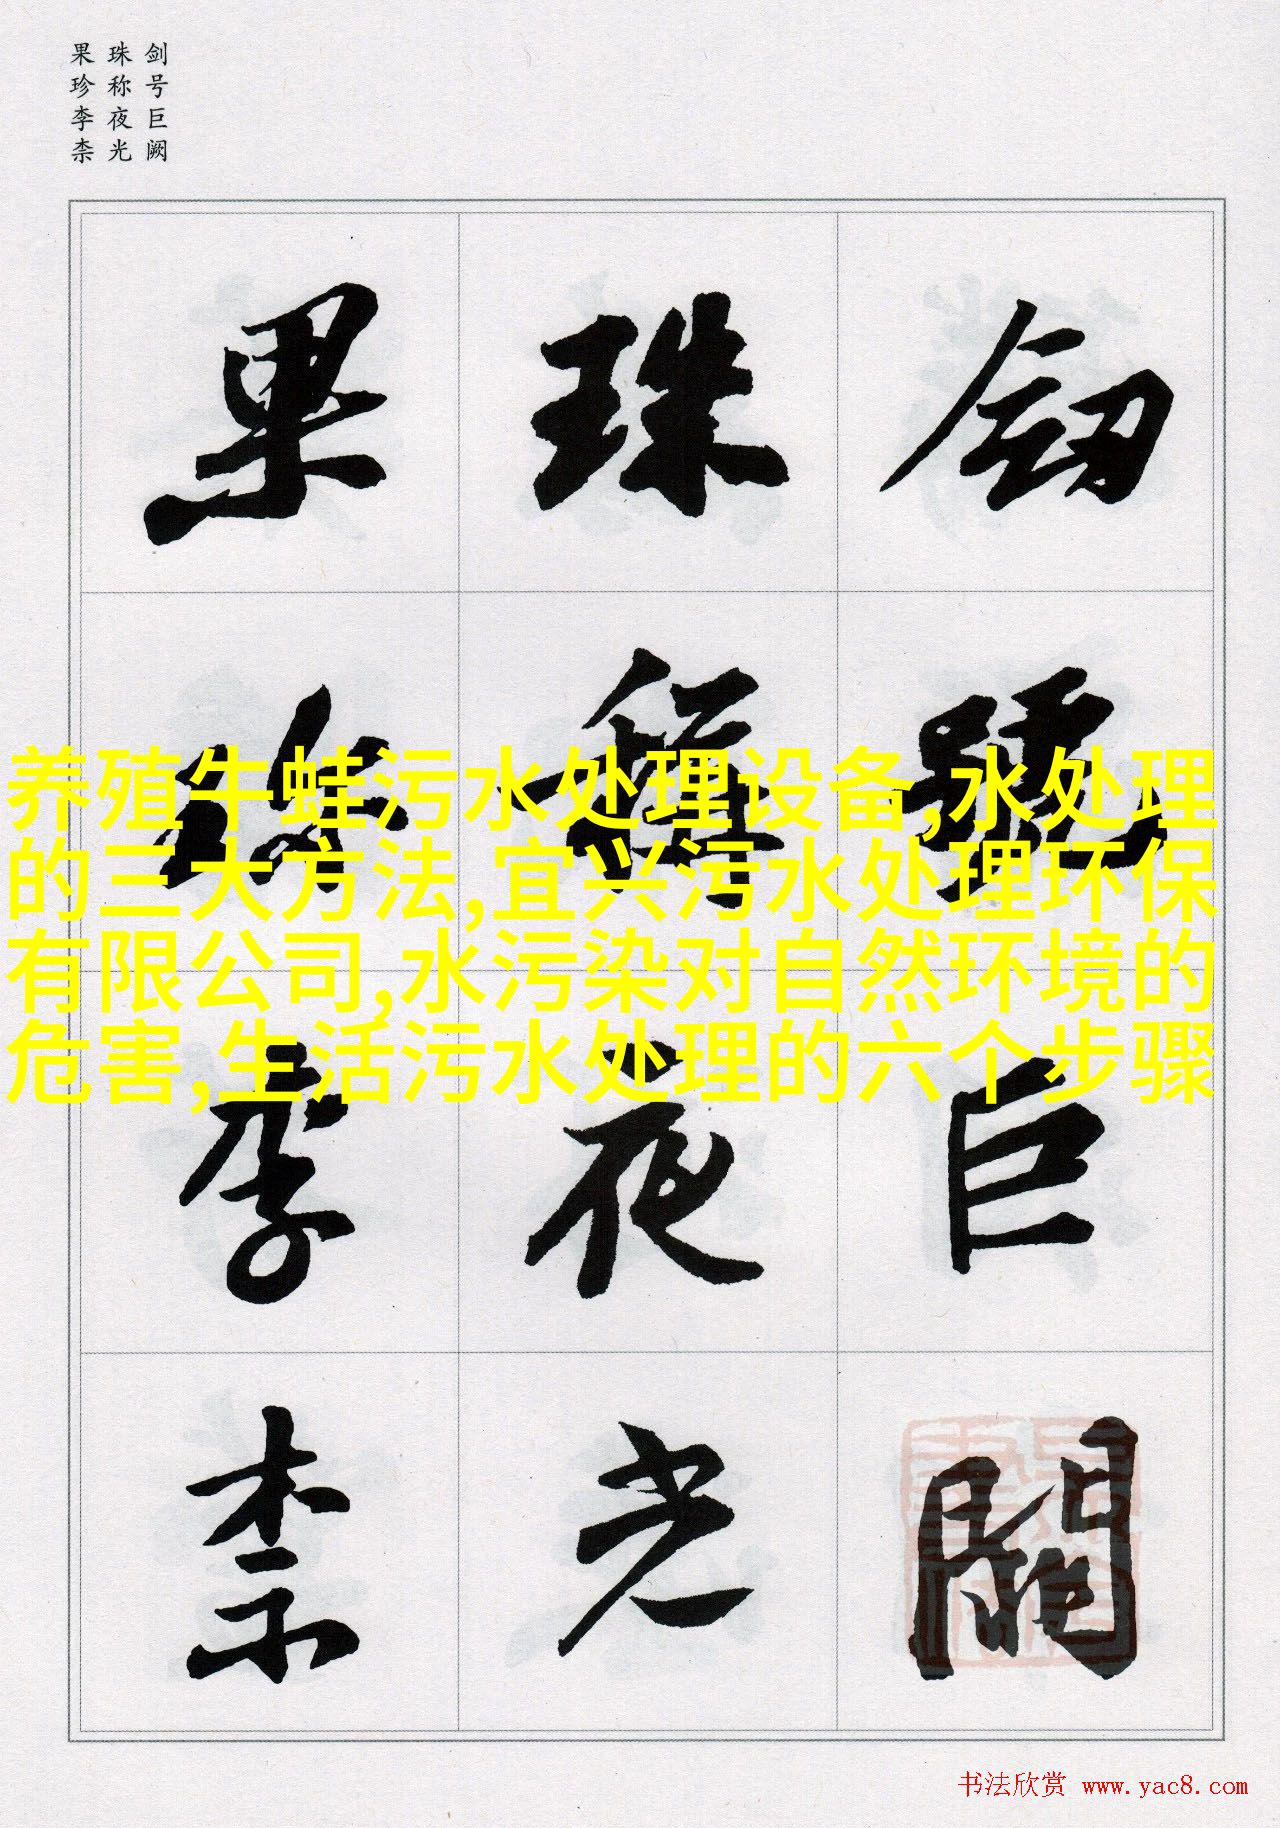 剑号巨阙
珠称夜光
果珍李柰
劒號巨闕
珠稱夜光
果珍李柰
养殖牛蛙污水处理设备,水处理
的三大方法,宜兴污水处理环保
有限公司,水污染对自然环境的
危害,生活污水处理的六个步骤
书法欣赏 www.yac8.com